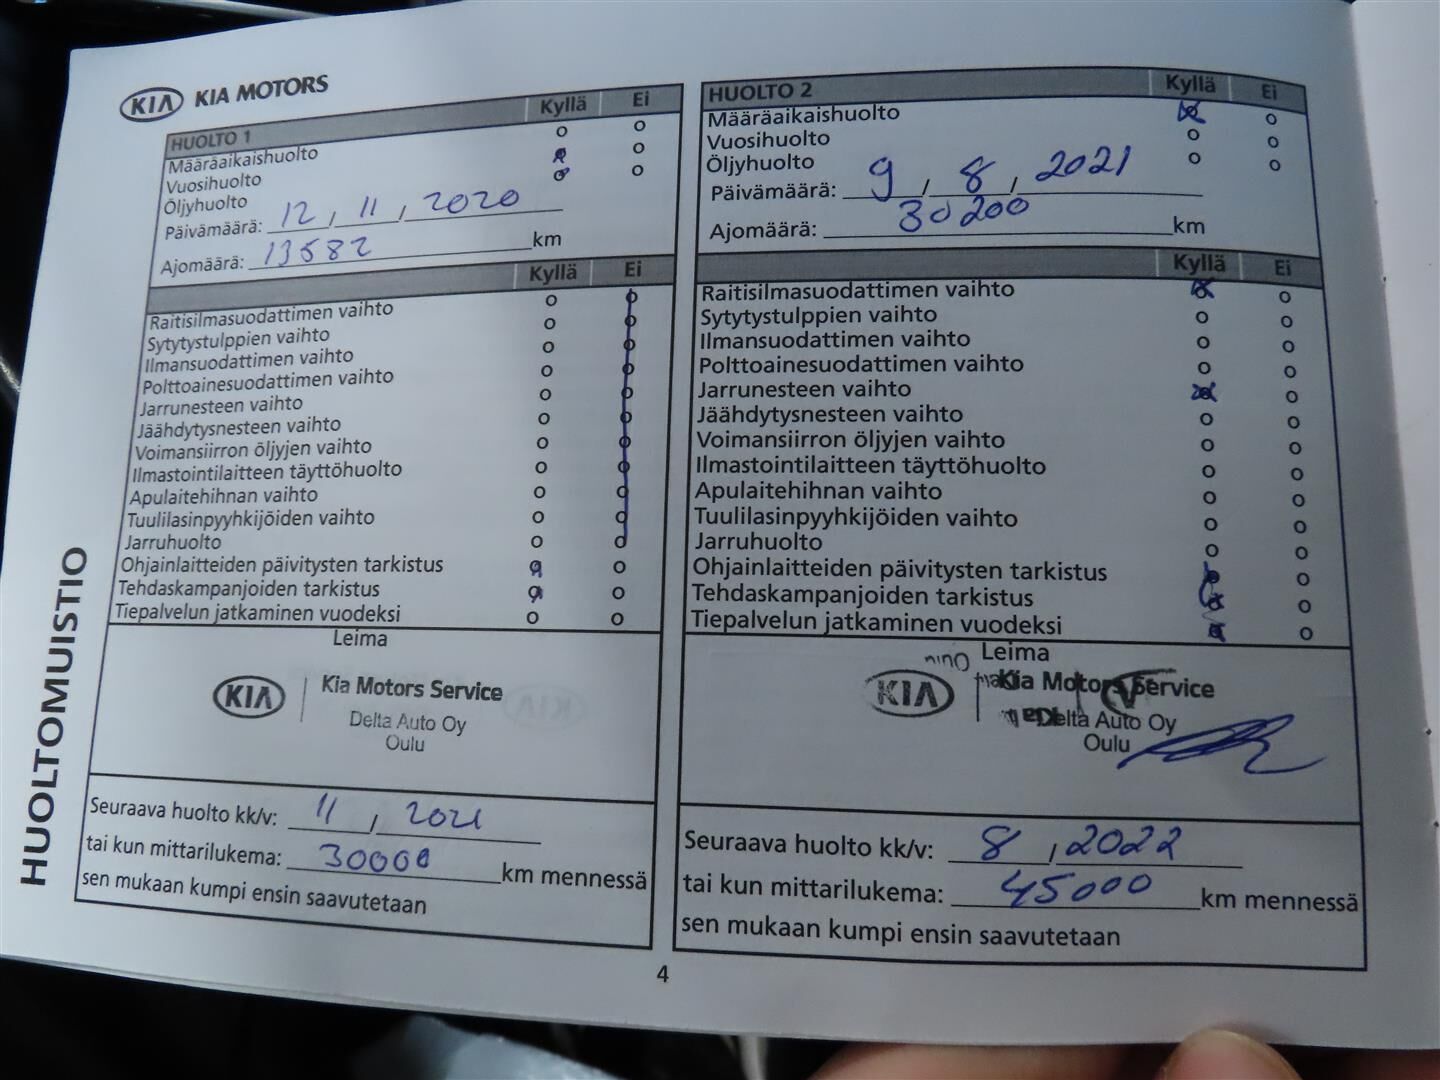 KIA KIA MOTORS
HUOLTO 1 Kyllä Ei
Määräaikaishuolto o o
Vuosihuolto o
Öljyhuolto o
Päivämäärä: 12, 11, 2020
Ajomäärä: 13582 km
Kyllä Ei
Raitisilmasuodattimen vaihto o
Sytytystulppien vaihto o
Ilmansuodattimen vaihto o
Polttoainesuodattimen vaihto o
Jarrunesteen vaihto o
Jäähdytysnesteen vaihto o
Voimansiirron öljyjen vaihto o
Ilmastointilaitteen täyttöhuolto o
Apulaitehihnan vaihto o
Tuulilasinpyyhkijöiden vaihto o
Jarruhuolto o
Ohjainlaitteiden päivitysten tarkistus o
Tehdaskampanjoiden tarkistus o
Tiepalvelun jatkaminen vuodeksi o o
Leima
KIA Kia Motors Service
Delta Auto Oy
Oulu
Seuraava huolto kk/v: 11, 2021
tai kun mittarilukema: 30000 km mennessä
sen mukaan kumpi ensin saavutetaan
HUOLTO 2 Kyllä Ei
Määräaikaishuolto o
Vuosihuolto o o
Öljyhuolto o o
Päivämäärä: 9, 8, 2021
Ajomäärä: 30200 km
Kyllä Ei
Raitisilmasuodattimen vaihto o
Sytytystulppien vaihto o o
Ilmansuodattimen vaihto o o
Polttoainesuodattimen vaihto o o
Jarrunesteen vaihto o
Jäähdytysnesteen vaihto o o
Voimansiirron öljyjen vaihto o o
Ilmastointilaitteen täyttöhuolto o o
Apulaitehihnan vaihto o o
Tuulilasinpyyhkijöiden vaihto o o
Jarruhuolto o o
Ohjainlaitteiden päivitysten tarkistus o
Tehdaskampanjoiden tarkistus o
Tiepalvelun jatkaminen vuodeksi o
Leima
Oulu
KIA Kia Motors Service
Delta Auto Oy
Oulu
Seuraava huolto kk/v: 8, 2022
tai kun mittarilukema: 45000 km mennessä
sen mukaan kumpi ensin saavutetaan
HUOLTOMUISTIO
4